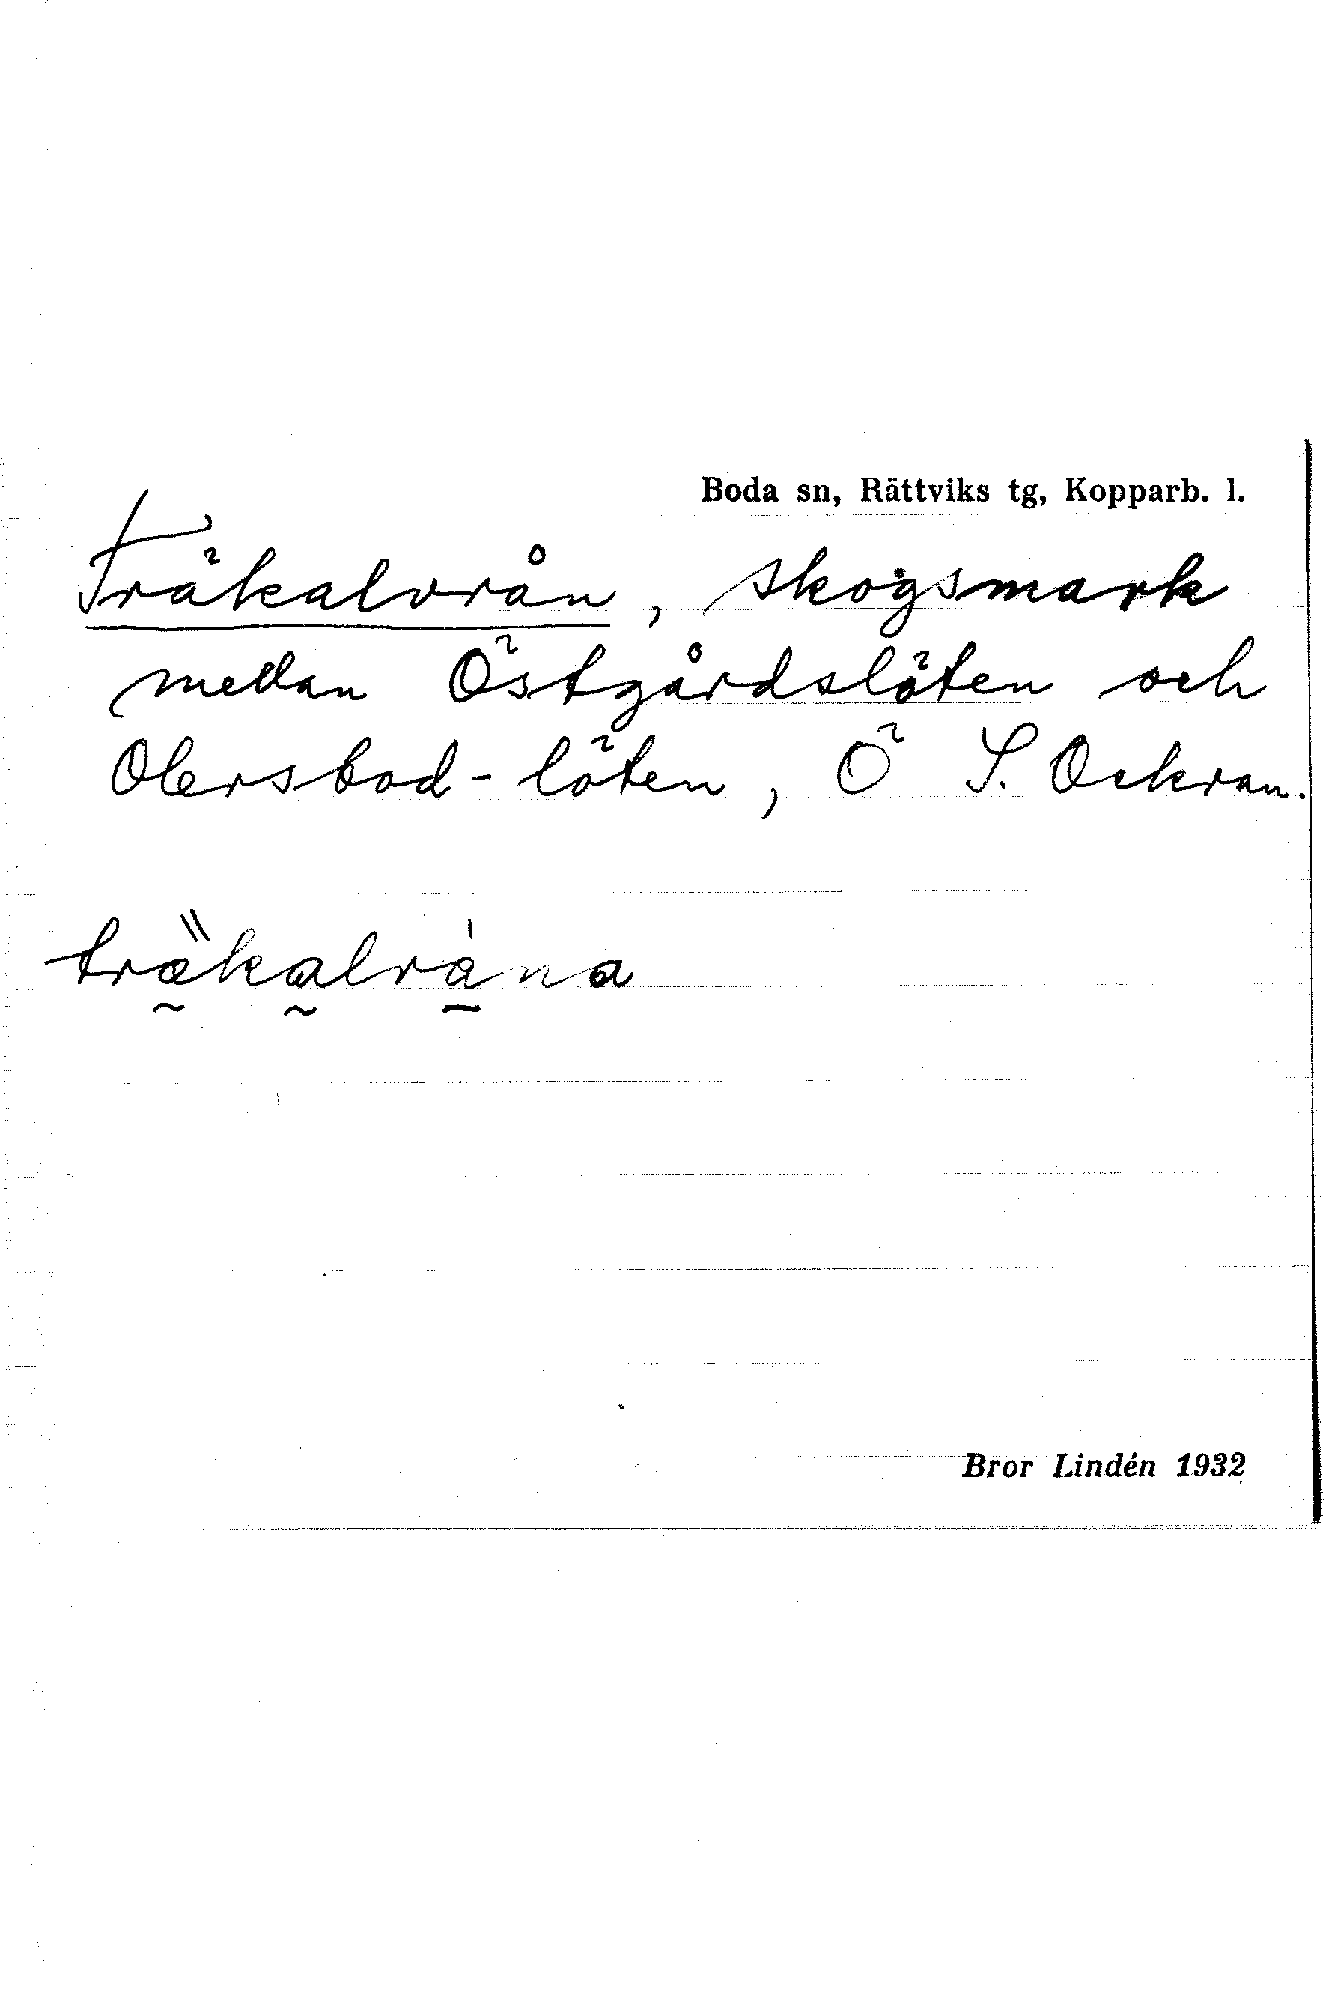 Boda sn, Rättviks tg, Kopparb. l.
Träkalvrån, skogsmark
mellan Östgårdslöten och
Olersbod-löten, Ö S. Ockran.
träkalvråna
Bror Lindén 1932